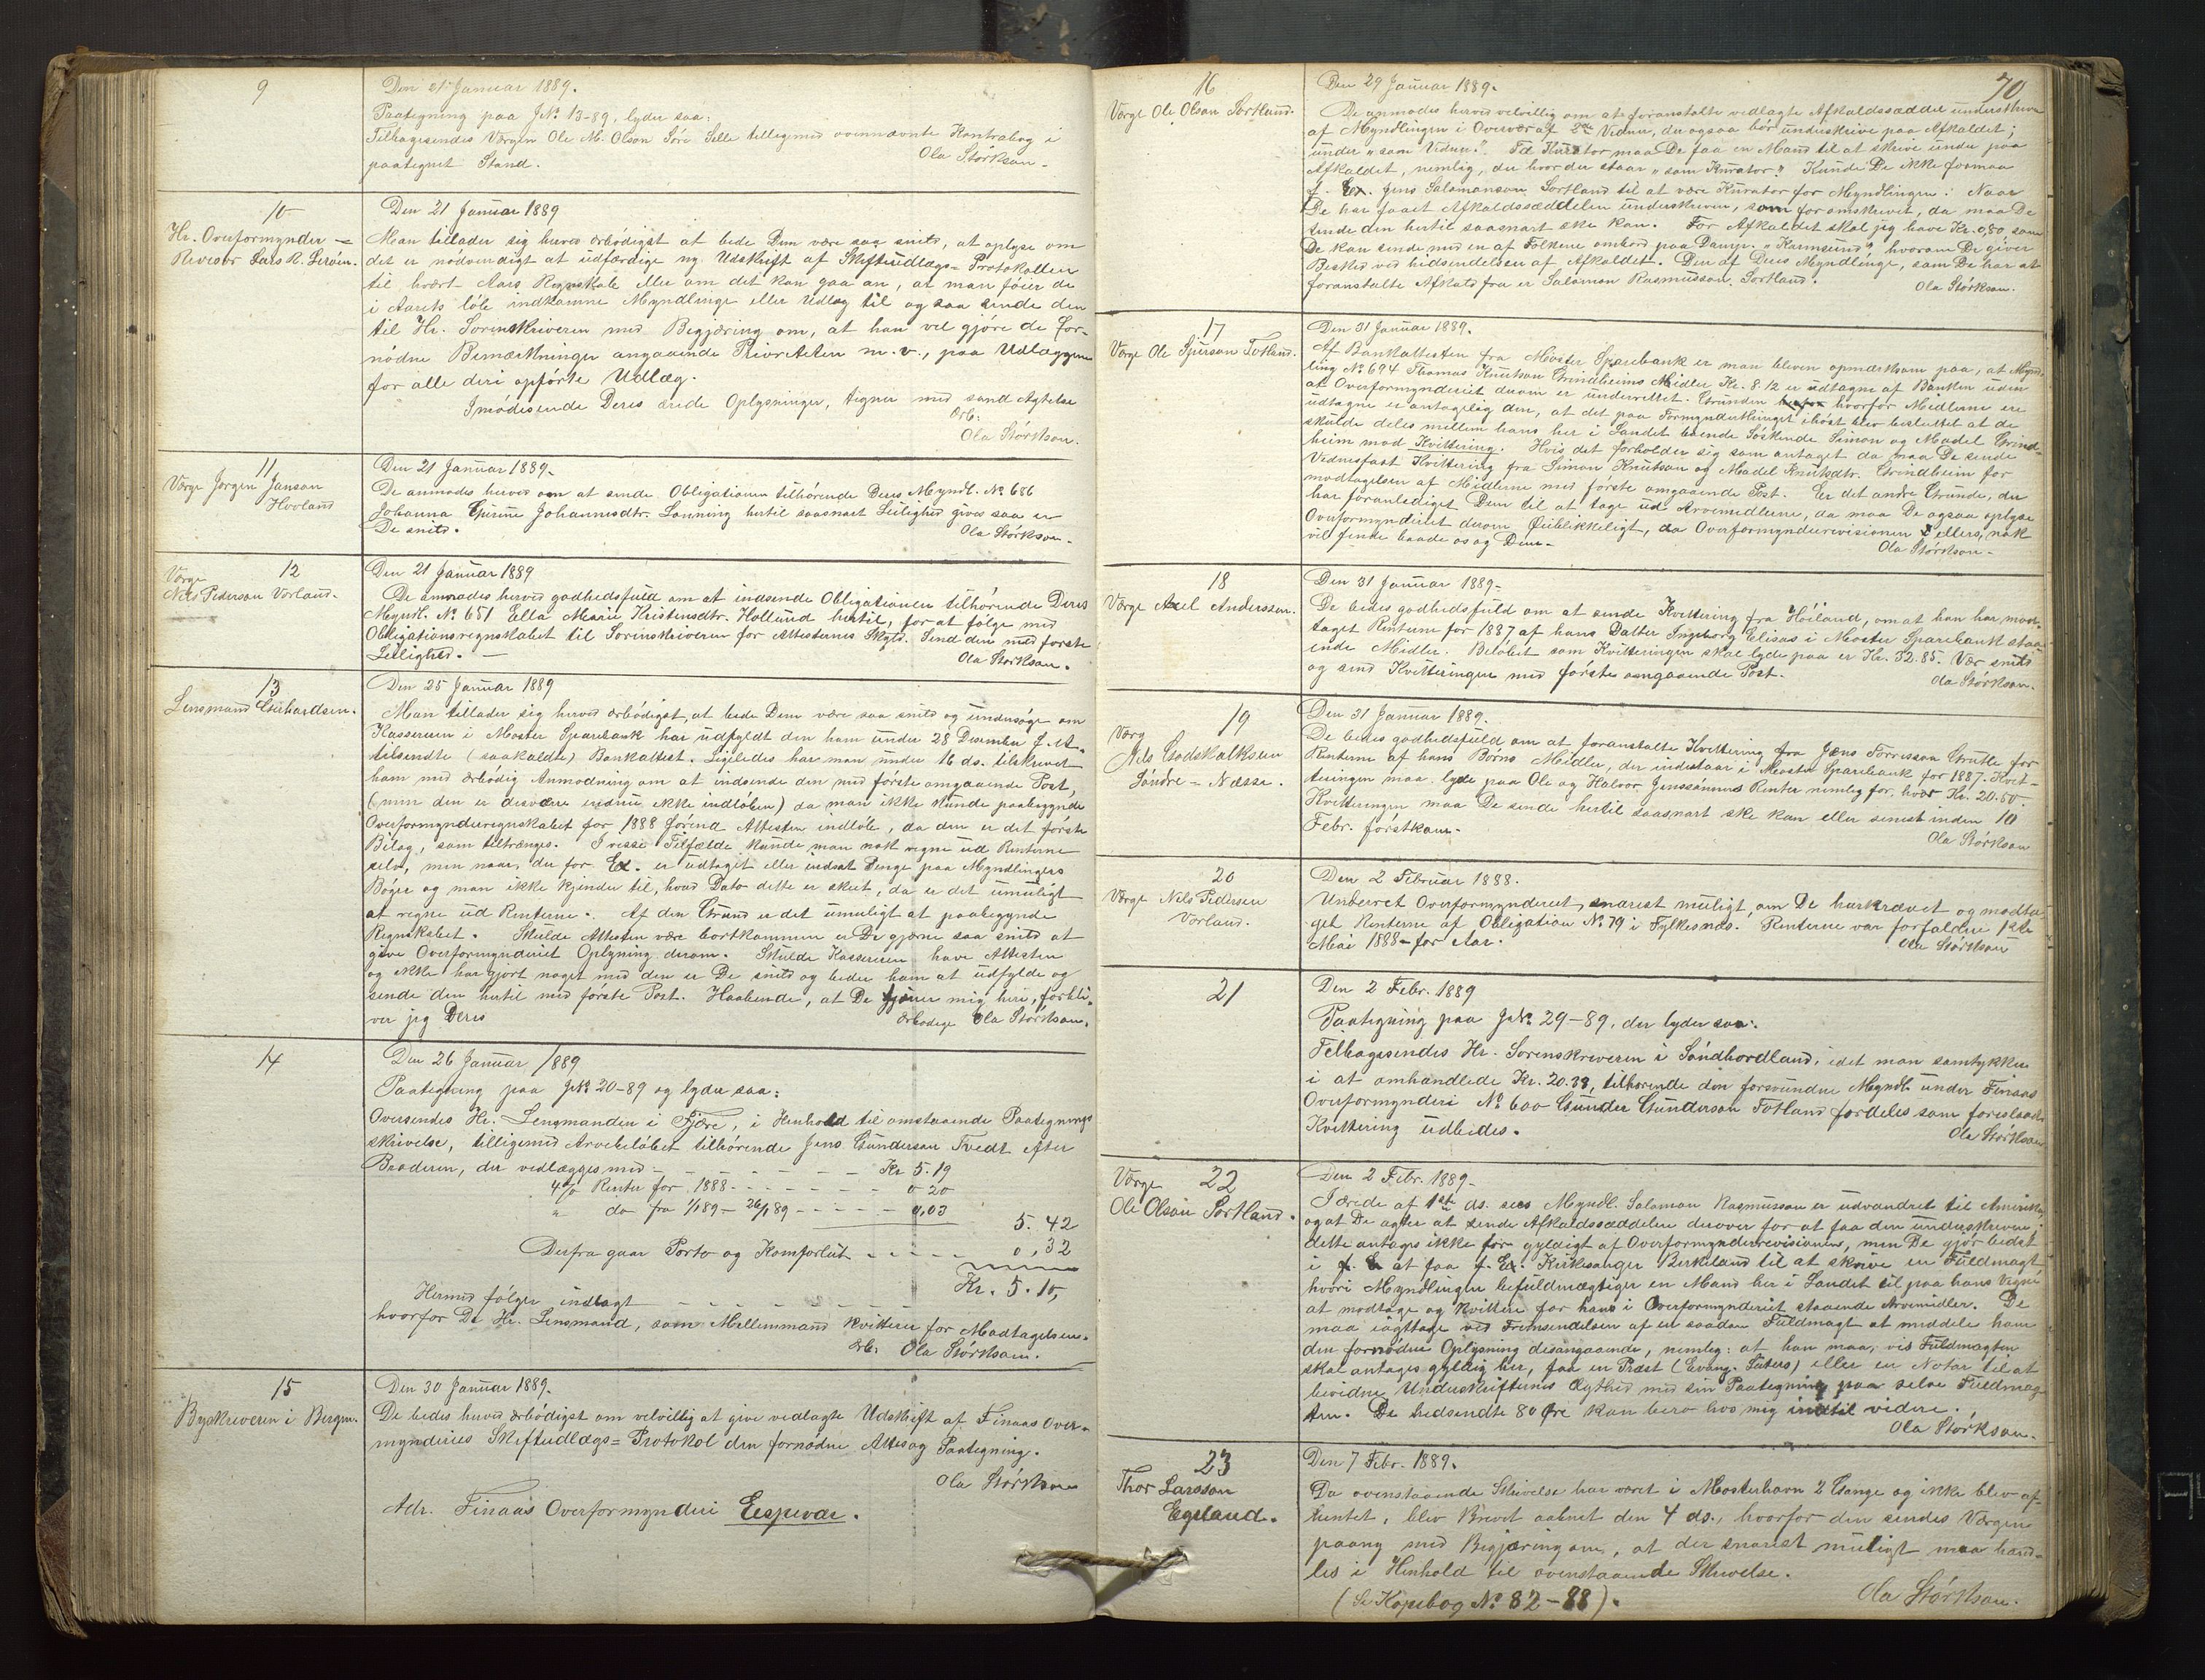 9
Den 21 Januar 1889.
Paategning paa J№ 13-89, lyder saa:
Tilbagesendes Værgen Ole M. Olson Søre Selle tilligemed ovennævnte Kontrabog i
paategnet Stand.
Ola Størkson.
10
Hr. Overformynder =
Revisor Lars R. Lerøen.
Den 21 Januar 1889
Man tillader sig herved ærbødigst at bede Dem være saa snild, at oplyse om
det er nødvendigt at udfærdige ny Udskrift af Skifteudlægs = Protokollen
til hvert Aars Regnskab eller om det kan gaa an, at man føier de
i Aarets løb indkomne Myndlinge eller Udlæg til og saa sende den
til Hr. Sorenskriveren med Begjæring om, at han vil gjøre de for-
nødne Bemærkninger angaaende Prioriteten m. v., paa Udlæggene
for alle deri opførte Udlæg.
Imødeseende Deres ærede Oplysninger, tegner med sand Agtelse
Ærb.
Ola Størkson.
11
Værge Jørgen Janson
Hovland
Den 21 Januar 1889.
De anmodes herved om at sende Obligationen tilhørende Deres Myndl. № 686
Johanna Gurine Johannesdtr. Lønning hertil saasnart Leilighed gives saa er
De snild.
Ola Størkson.
12
Værge
Nils Pederson Vorland.
Den 21 Januar 1889
De anmodes herved godhedsfuld om at indsende Obligationen tilhørende Deres
Myndl. № 651 Ella Marie Kristensdtr. Hollund hertil, for at følge med
Obligationsregnskabet til Sorenskriveren for Attestернes Skyld. Send den med første
Leilighed. —
Ola Størkson.
13
Lensmand Gerhardsen.
Den 25 Januar 1889
Man tillader sig herved ærbødigst, at bede Dem være saa snild og undersøge om
Kassereren i Moster Sparebank har udfyldt den ham under 28 Desember f. A.
tilsendte (saakaldte) Bankattest. Ligeledes har man under 16 ds. tilskrevet
ham med ærbødig Anmodning om at indsende den med første omgaaende Post,
(men den er desværre endnu ikke indløben) da man ikke kunde paabegynde
Overformynderregnskabet for 1888 førend Attesten indløb, da den er det første
Bilag, som tiltrænges. I visse Tilfælde kunde man nok regne ud Renterne
selv, men naar, der for Ex. er udtaget eller indsat Penge paa Myndlingers
Bøger og man ikke kjender til, hvad Dato dette er skeet, da er det umuligt
at regne ud Renterne. Af den Grund er det umuligt at paabegynde
Regnskabet. Skulde Attesten være bortkommen er De gjerne saa snild at
give Overformynderiet Oplysning derom. Skulde Kassereren have Attesten
og ikke har gjort noget med den er De snild og beder ham at udfylde og
sende den hertil med første Post. Haabende, at De tjener mig heri, forbli-
ver jeg Deres
ærbødige Ola Størkson.
14
Den 26 Januar 1889
Paategning paa J№ 20-89 og lyder saa:
Oversendes Hr. Lensmanden i Fjære, i Henhold til omstaaende Paategnings
skrivelse, tilligemed Arvebeløbet tilhørende Jens Gunderson Tvedt efter
Broderen, der vedlægges med - - - - - - - Kr 5.19
4% Renter for 1888 - - - - - - 0 20
" do fra 1/1 89 - 26/1 89 - - - - - 0,03
5. 42
Derfra gaar Porto og Konvolut - - - - - 0,32
Kr. 5.10,
Hermed følger indlagt - - - - - - -
hvorfor De Hr. Lensmand, som Mellemmand kvitterer for Modtagelsen.
Ærb. Ola Størkson.
15
Byskriveren i Bergen.
Den 30 Januar 1889.
De bedes herved ærbødigst om velvillig at give vedlagte Udskrift af Finaas Over-
mynderies Skifteudlægs = Protokol den fornødne Attes og Paategning.
Ola Størkson
Adr. Finaas Overformynderi Espevær.
70
16
Værge Ole Olson Sortland.
Den 29 Januar 1889.
De anmodes herved velvillig om at foranstalte vedlagte Afkaldssæddel underskreven
af Myndlingen i Overvær af 2de Vidner, der ogsaa bør underskrive paa Afkaldet;
under "som Vidner." Til Kurator maa De faa en Mand til at skrive under paa
Afkaldet, nemlig, der hvor der staar "som Kurator." Kunde De ikke formaa
f. Ex. Jens Salamonson Sortland til at være Kurator for Myndlingen. Naar
De har faaet Afkaldssæddelen underskreven, som foromskrevet, da maa De
sende den hertil saasnart ske kan. For Afkaldet skal jeg have Kr. 0,80 som
De kan sende med en af Folkene ombord paa Dampr. "Karmsund", hvorom De giver
Besked ved hidsendelsen af Afkaldet. Den af Deres Myndlinge, som De har at
foranstalte Afkald fra er Salomon Rasmusson Sortland.
Ola Størkson.
17
Værge Ole Sjurson Totland.
Den 31 Januar 1889.
Af Bankattesten fra Moster Sparebank er man bleven opmærksom paa, at Mynd-
ling № 694 Thomas Knutson Grindheims Midler Kr. 8.12 er udtagne af Banken uden
at Overformynderiet derom er underrettet. Grunden hvorfor Midlerne ere
udtagne er antagelig den, at det paa Formynderthinget i høst blev besluttet at de
skulde deles mellem hans her i Landet boende Søskende Simon og Madel Grind-
heim mod Kvittering. Hvis det forholder sig som antaget da maa De sende
Vidnesfast Kvittering fra Simon Knutson og Madel Knutsdtr. Grindheim for
modtagelsen af Midlerne med første omgaaende Post. Er det andre Grunde, der
har foranlediget Dem til at tage ud Arvemidlerne, da maa De ogsaa oplyse
Overformynderiet derom Øieblikkeligt, da Overformynderrevisionen ellers, nok
vil finde baade os og Dem.
Ola Størkson.
18
Værge Axel Anderssen.
Den 31 Januar 1889.
De bedes godhedsfuld om at sende Kvittering fra Høiland, om at han har mod-
taget Renterne for 1887 af hans Datter Ingeborg Elisas i Moster Sparebank staa-
ende Midler. Beløbet som Kvitteringen skal lyde paa er Kr. 32.85. Vær snild
og send Kvitteringen med første omgaaende Post.
Ola Størkson.
19
Værg
Nils Godskalksen
Søndre = Næsse.
Den 31 Januar 1889.
De bedes godhedsfuld om at foranstalte Kvittering fra Jens Torrisson Grutle for
Renterne af hans Børns Midler, der indestaar i Moster Sparebank for 1887. Kvit-
teringen maa lyde paa Ole og Halvor Jenssønnes Renter nemlig for hver Kr. 20.50.
Kvitteringen maa De sende hertil saasnart ske kan eller senest inden 10
Febr. førstkom.
Ola Størkson
20
Værge Nils Pederson
Vorland.
Den 2 Februar 1888.
Underret Overformynderiet, snarest muligt, om De har krævet og modta-
get Renterne af Obligation № 79 i Fylkesnæs. Renterne var forfaldne 1ste
Mai 1888 - for Aar.
Ola Størkson
21
Den 2 Febr. 1889
Paategning paa J№ 29-89, der lyder saa:
Tilbagesendes Hr. Sorenskriveren i Søndhordland, idet man samtykker
i at omhandlede Kr. 20.38, tilhørende den forsvundne Myndl. under Finaas
Overformynderi № 600 Gunder Gunderson Totland fordeles som foreslaaet.
Kvittering udbedes.
Ola Størkson
22
Værge
Ole Olson Sortland.
Den 2 Febr. 1889.
I ærede af 1ste ds. sees Myndl. Salomon Rasmusson er udvandret til Amerika,
og at De agter at sende Afkaldssæddelen derover for at faa den underskreven;
dette antages ikke for gyldigt af Overformynderrevisionen, men De gjør bedst
i at faa f. Ex. Kirkesanger Birkeland til at skrive en Fuldmagt,
hvori Myndlingen befuldmægtiger en Mand her i Landet til paa hans Vegne
at modtage og kvittere for hans i Overformynderiet staaende Arvemidler. De
maa iagttage ved Fremsendelsen af en saadan Fuldmagt at meddele ham
den fornødne Oplysning desangaaende, nemlig: at han maa, vis Fuldmagten
skal antages gyldig her, faa en Præst (Evang. Luters) eller en Notar til at
bevidne Underskrifternes Ægthed med sin Paategning paa selve Fuldmag-
ten. De hidsendte 80 Øre kan bero hos mig indtil videre.
Ola Størkson.
23
Thor Larsson
Egeland.
Den 7 Febr. 1889.
Da ovenstaaende Skrivelse har været i Mosterhavn 2 Gange og ikke blev af-
hentet, blev Brevet aabnet den 4 ds., hvorfor den sendes Værgen
paany med Begjæring om, at der snarest muligt maa hand-
les i Henhold til ovenstaaende Skrivelse.
(Se Kopibog № 82-88).
Ola Størkson.